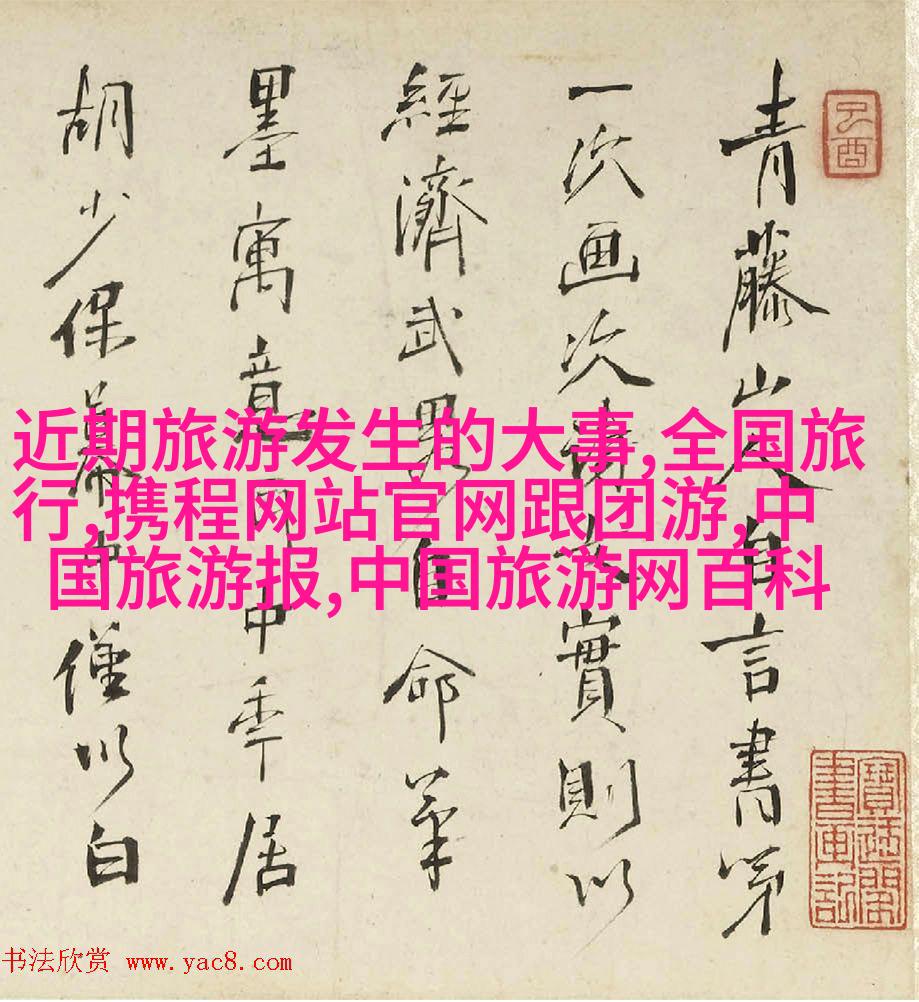 己酉
青藤山人自言書第
一次画次詩文實則以
經濟武略自命筆
墨寓意耳中年居
胡少保幕中僅以白
近期旅游发生的大事,全国旅
行,携程网站官网跟团游,中
国旅游报,中国旅游网百科
寶迂閣
書畫記
书法欣赏 www.yac8.com